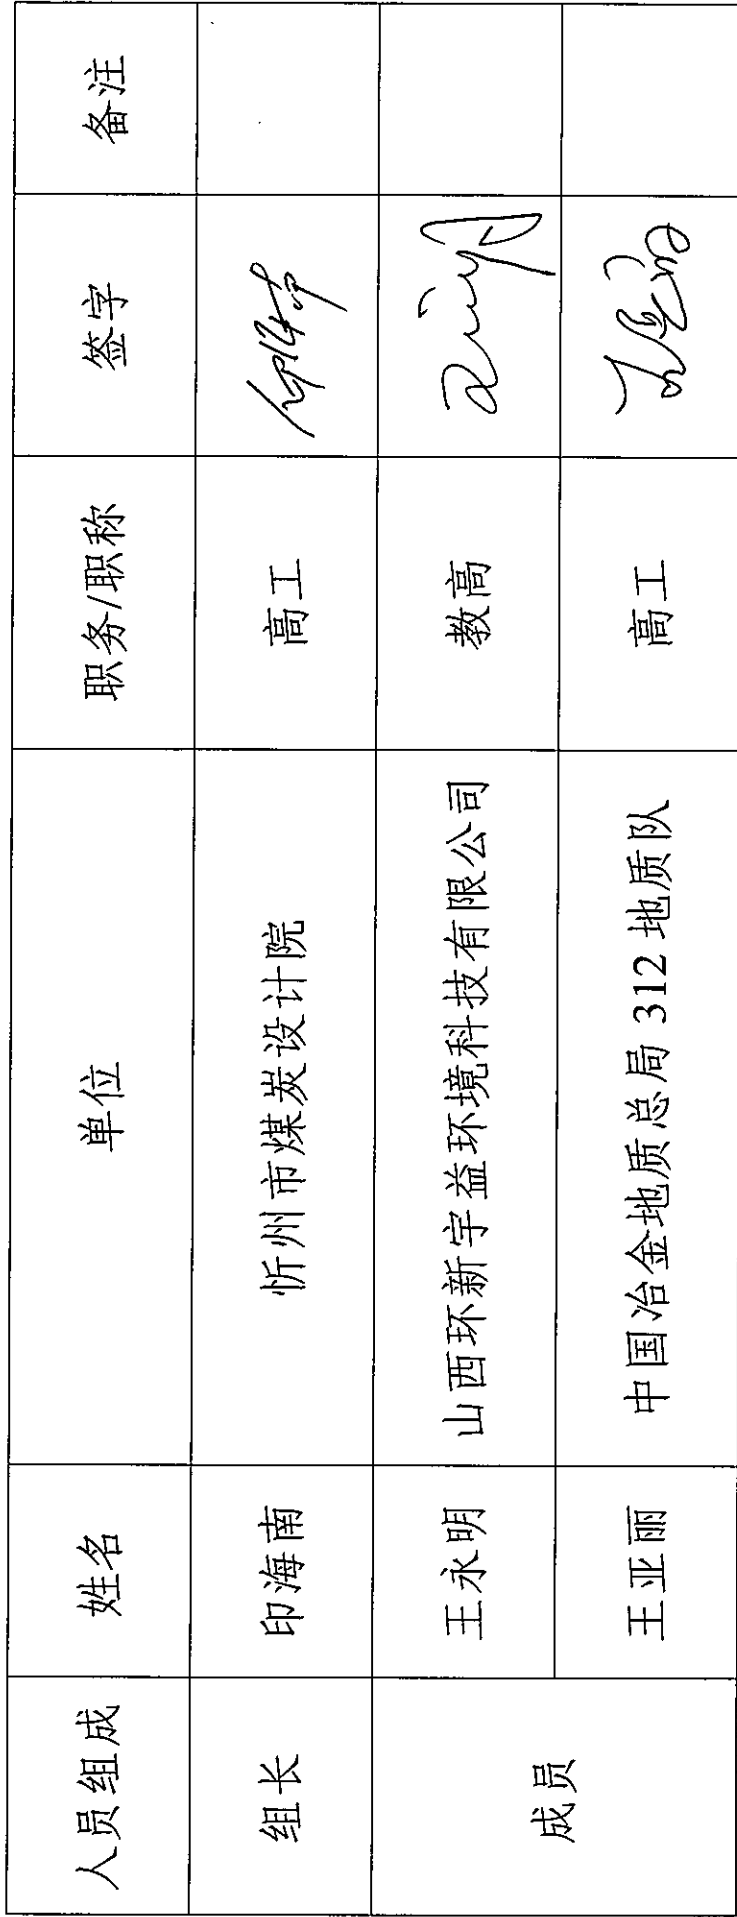 人员组成 姓名 单位 职务/职称 签字 备注
组长 印海南 忻州市煤炭设计院 高工
成员 王永明 山西环新宇益环境科技有限公司 教高
王亚丽 中国冶金地质总局 312 地质队 高工